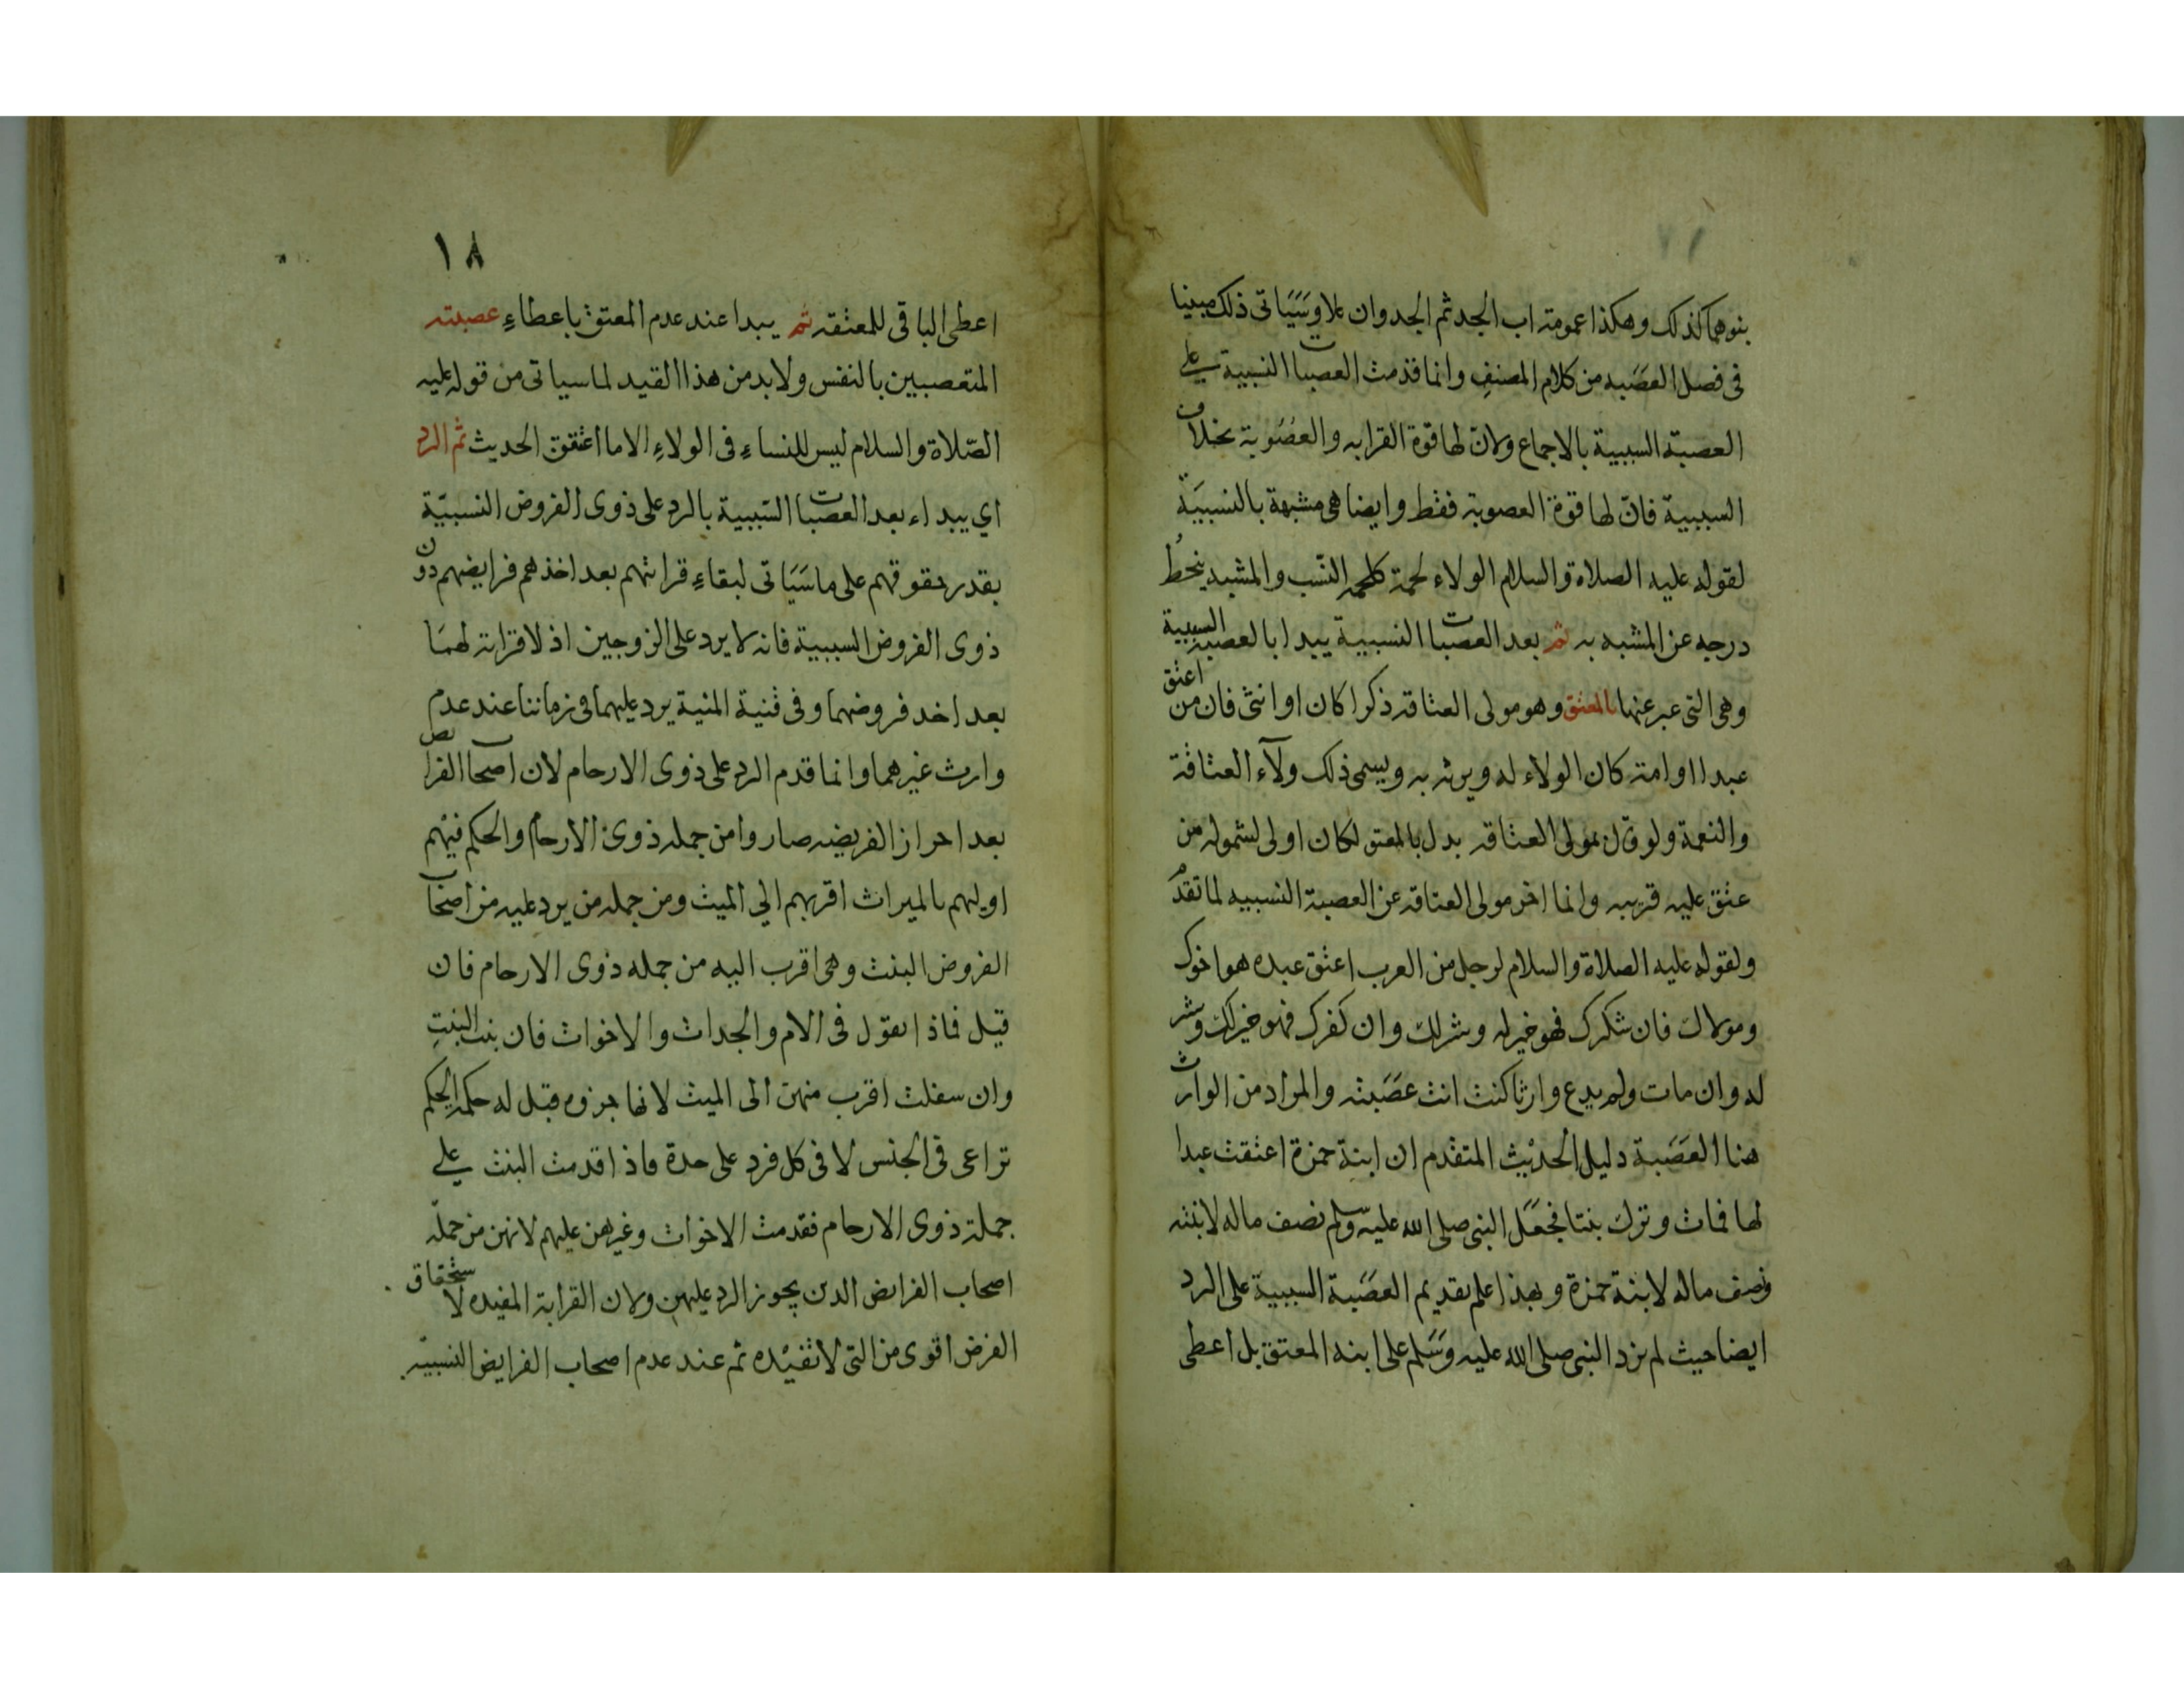 بنوهما كذلك وهكذا عمومة اب الجد ثم الجد وان علا وسَيَاتى ذلك مبينا
فى فصل العصَبه من كلام المصنفِ وانما قدمت العصبات النسبية على
العصبة السببية بالاجماع ولان لها قوة القرابه والعصُوبة بخلاف
السببية فانّ لها قوة العصوبة فقط وايضا هى مشبهة بالنسبيَة
لقوله عليه الصلاة والسلام الولاء لحمة كلحمة النسَب والمشبه ينحطُ
درجه عن المشبه به ثم بعد العصبات النسبية يبدا بالعصبة السببية
وهى التى عبر عنها بالمعتق وهو مولى العتاقه ذكرا كان او انثى فان من اعتق
عبدا او امة كان الولاء له ويرث به ويسمى ذلك ولآء العتاقة
والنعمة ولو قال بمولى العتاقه بدل بالمعتق لكان اولى لشموله من
عتق عليه قريبه وانما اخر مولى العتاقه عن العصبة النسبيه لما تقدم
ولقوله عليه الصلاة والسلام لرجل من العرب اعتق عبده هو اخوك
ومولاك فان شكرك فهو خير له وشر لك وان كفرك فهو خير لك وشر
له وان مات ولم يدع وارثا كنت انت عصَبته والمراد من الوارث
هنا العصَبة دليل الحديث المتقدم ان ابنة حمزة اعتقت عبدا
لها فمات وترك بنتا فجعَل النبى صلى الله عليه وسلم نصف ماله لابنته
ونصف ماله لابنة حمزة وبهذا علم تقديم العصَبة السببية على الرد
ايضا حيث لم يرد النبى صلى الله عليه وسَلم على ابنه المعتق بل اعطى
١٨
اعطى الباقى للمعتقه ثم يبدا عند عدم المعتق باعطاءِ عصبته
المتعصبين بالنفس ولا بد من هذا القيد لما سياتى من قوله عليه
الصّلاة والسلام ليس للنساءِ فى الولاءِ الا ما اعتقن الحديث ثم الرد
اي يبداء بعد العصبات السببية بالرد على ذوى الفروض النسبيّة
بقدر حقوقهم على ما سَيَاتى لبقاءِ قرابتهم بعد اخذهم فرايضهم دون
ذوى الفروض السببية فانه لا يرد على الزوجين اذ لا قرابة لهمَا
بعد اخد فروضهما وفى قنية المنية يرد عليهما فى زماننا عند عدم
وارث غيرهما وانما قدم الرد على ذوى الارحام لان اصحاب الفرايض
بعد احراز الفريضه صاروا من جمله ذوى الارحام والحكم فيهم
اوليهم بالميراث اقربهم الي الميت ومن جمله من يرد عليه من اصحاب
الفروض البنت وهى اقرب اليه من جمله ذوى الارحام فان
قيل فماذا تقول فى الام والجدات والاخوات فان بنت البنتِ
وان سفلت اقرب منهن الى الميت لانها جزوه قيل له حكمة الحكم
تراعى فى الجنس لا فى كل فرد على حدة فاذا قدمت البنت على
جملة ذوى الارحام فقدمت الاخوات وغيرهن عليهم لانهن من جملة
اصحاب الفرايض الدين يجوز الرد عليهن ولان القرابة المفيده لاستحقاق
الفرض اقوى من التى لا تفيده ثم عند عدم اصحاب الفرايض النسبيّه